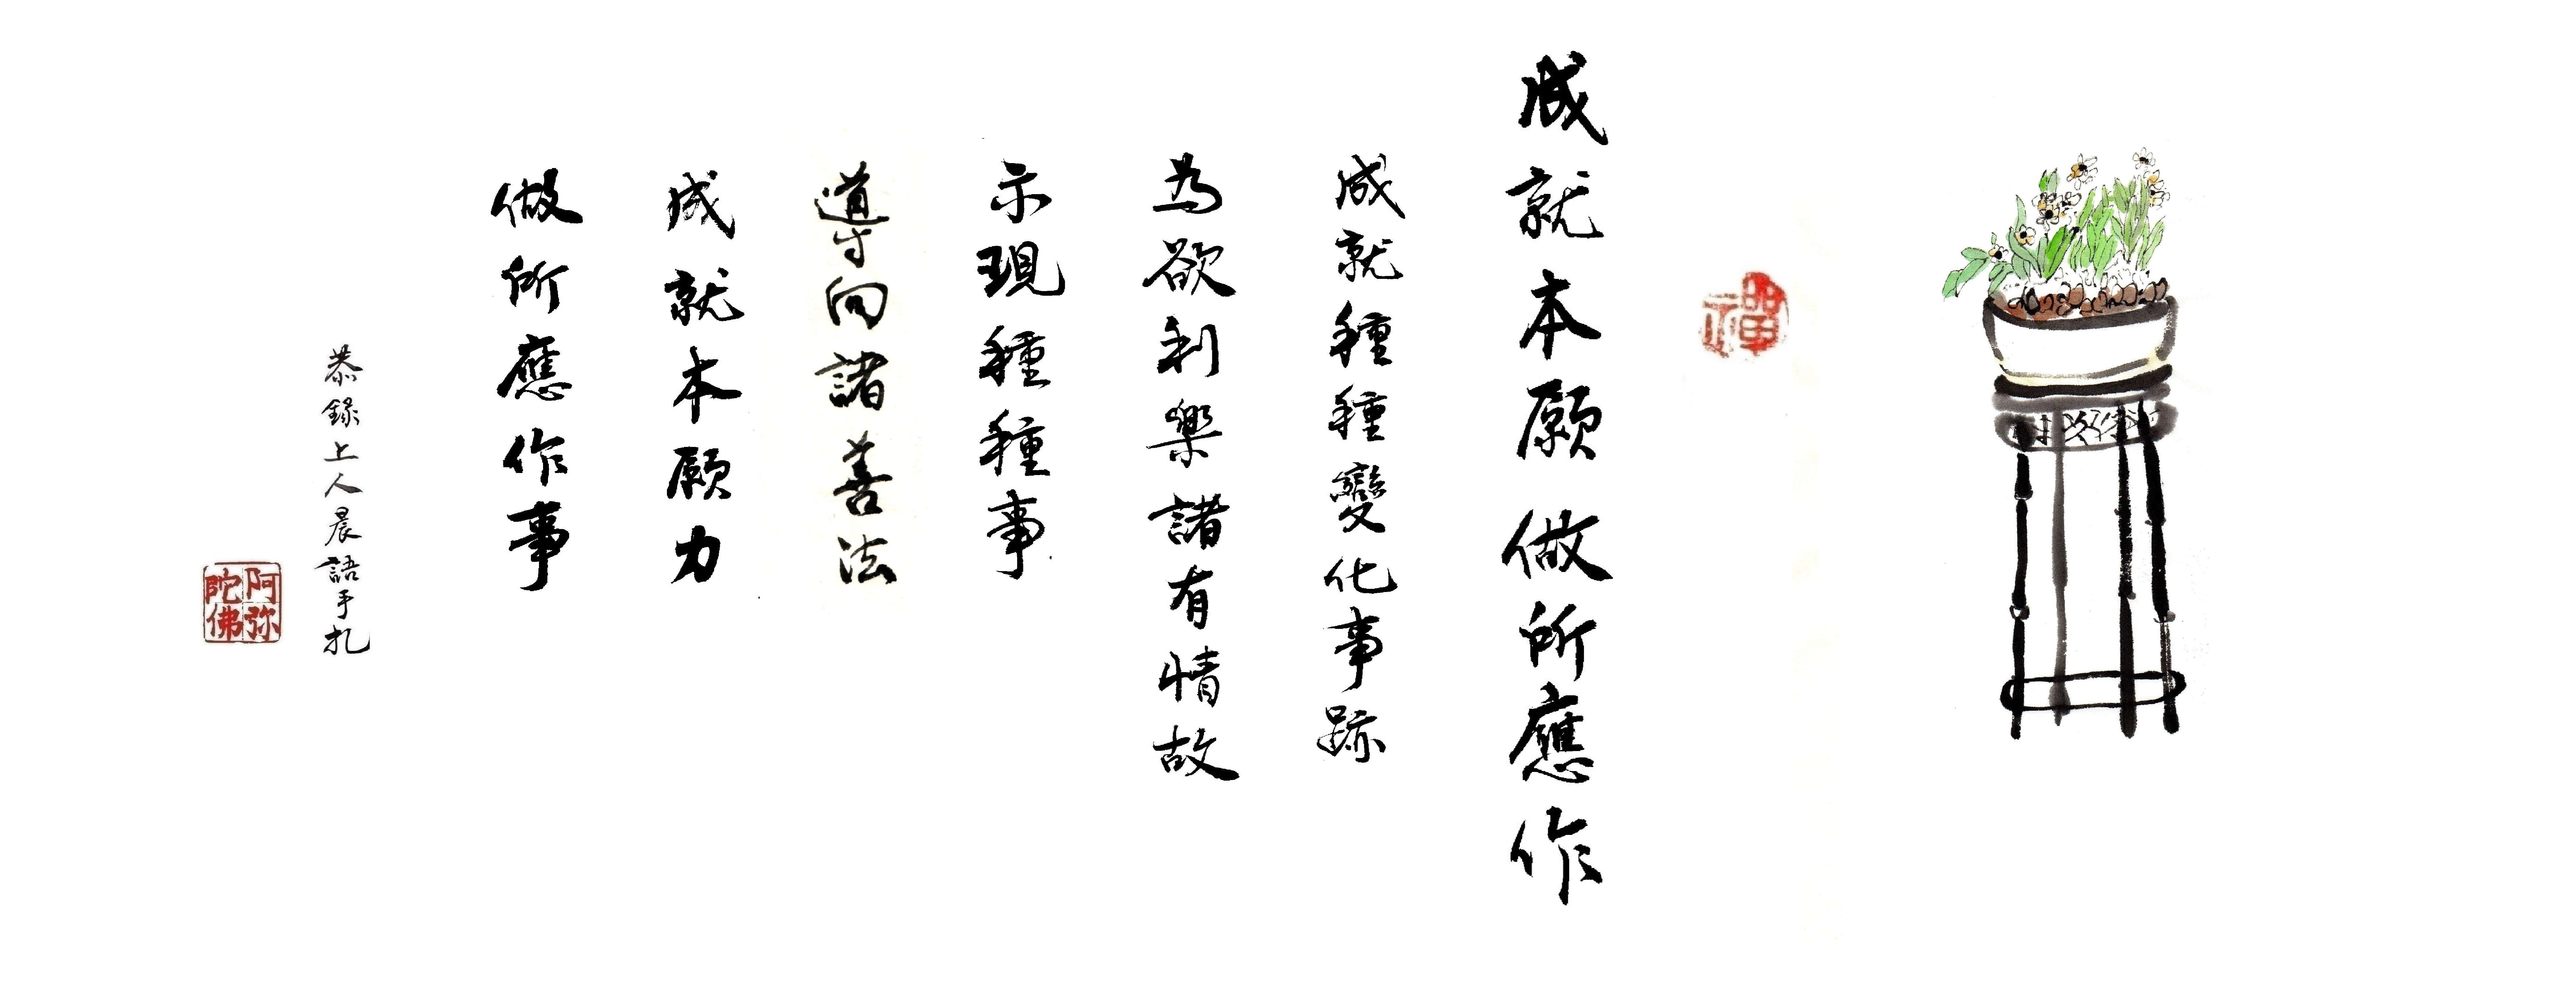 禪
成就本願做所應作
成就種種變化事跡
為欲利樂諸有情故
示現種種事
導向諸善法
成就本願力
做所應作事
恭錄上人晨語手札
阿弥陀佛